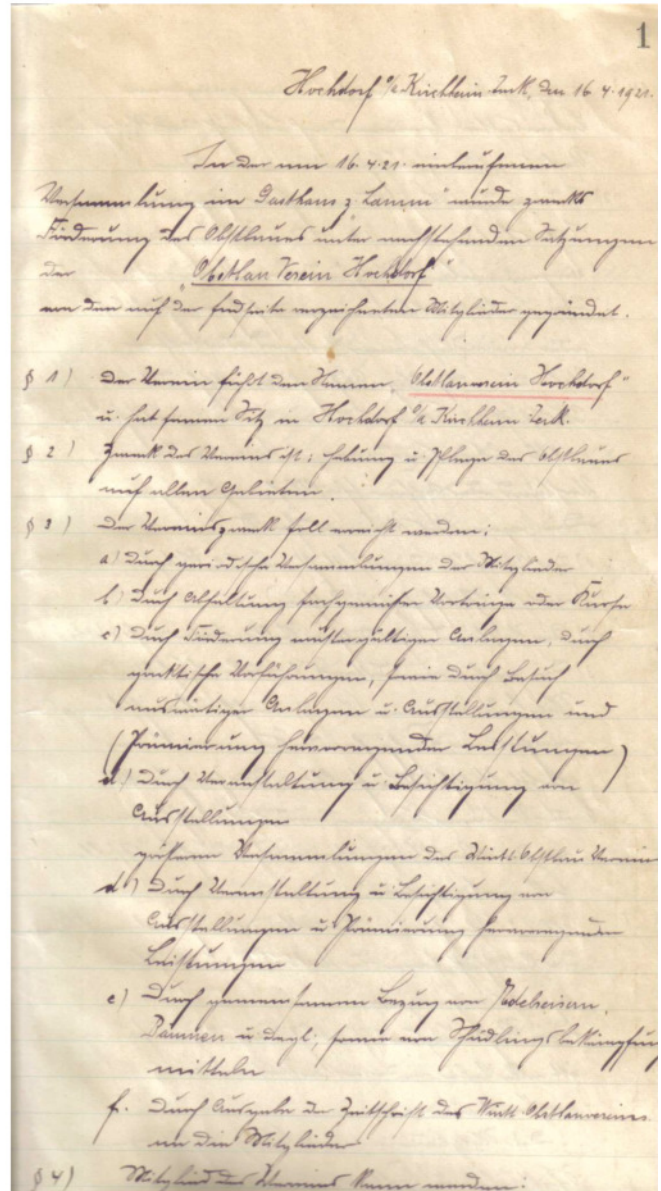 1
Hochdorf o/a Kirchheim-Teck, den 16.4.1921.
In der am 16.4.21. einberufenen
Versammlung im Gasthaus z. Lamm" wurde zwecks
Förderung des Obstbaues unter nachstehenden Satzungen
der "Obstbau Verein Hochdorf"
von den auf der Endseite verzeichneten Mitglieder gegründet.
§ 1) Der Verein führt den Namen „Obstbauverein Hochdorf"
u. hat seinen Sitz in Hochdorf o/a Kirchheim-Teck.
§ 2) Zweck des Vereins ist: Hebung u. Pflege des Obstbaues
auf allen Gebieten.
§ 3) Der Vereinszweck soll erreicht werden:
a) Durch periodische Versammlungen der Mitglieder
b) Durch Abhaltung fachgemäßer Vorträge oder Kurse
c) Durch Förderung mustergültiger Anlagen, durch
praktische Vorführungen, sowie durch Besuch
auswärtiger Anlagen u. Ausstellungen und
(Prämierung hervorragender Leistungen)
d) Durch Veranstaltung u. Besichtigung von
Ausstellungen
größeren Versammlungen des Württ. Obstbau Vereins
d) Durch Veranstaltung u. Besichtigung von
Ausstellungen u. Prämierung hervorragender
Leistungen
e) Durch gemeinsamen Bezug von Edelreisern,
Bäumen u. dergl., sowie von Schädlingsbekämpfungs
mitteln
f. Durch Ausgabe der Zeitschrift des Württ. Obstbauvereines
an die Mitglieder
§ 4) Mitglied des Vereins kann werden: